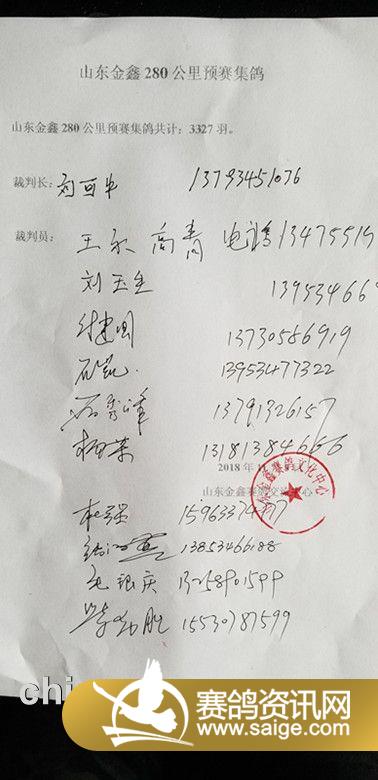 山东金鑫280公里预赛集鸽
山东金鑫280公里预赛集鸽共计：3327羽。
裁判长： 13793451076
裁判员：王永 高青 电话13475519
刘玉生 13953466
13730586919
石凯 13953477322
石秀峰 13791326157
杨荣 13181384666
2018年11
山东金鑫赛鸽交流中心
杜强 15963374
13853466188
毛银庆 13258901599
15530787599
赛鸽资讯网
www.saige.com